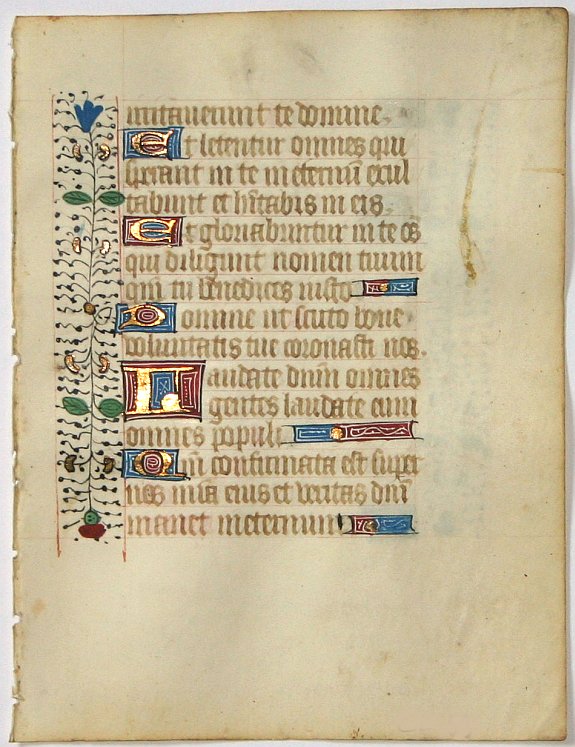 irritaverunt te domine.
Et letentur omnes qui
sperant in te in eternū exul
tabunt et hītabis in eis.
Et gloriabuntur in te oēs
qui diligunt nomen tuum
qm̄ tu benedices iusto
Domine ut scuto bone
voluntatis tue coronasti nos.
Laudate dnm̄ omnes
gentes laudate eum
omnes populi
Qm̄ confirmata est super
nos mīa eius et veritas dnī
manet in eternum